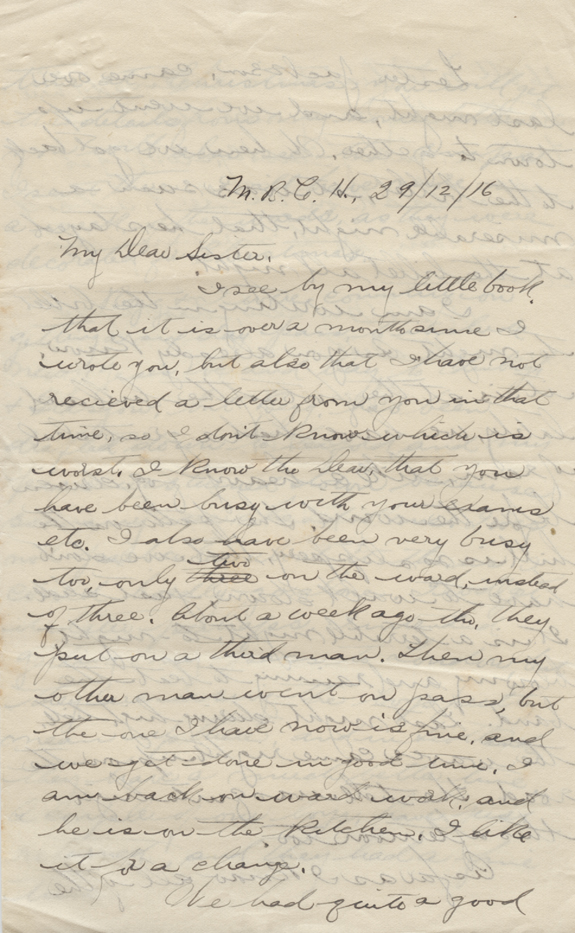 M. R. C. H., 29/12/16
My Dear Sister.
I see by my little book
that it is over a month since I
wrote you, but also that I have not
recieved a letter from you in that
time, so I don't know which is
worst. I know tho Dear, that you
have been busy with your exams
etc. I also have been very busy
two
too, only three on the ward, instead
of three. About a week ago tho, they
put on a third man. Then my
other man went on pass, but
the one I have now is fine, and
we get done in good time. I
am back on ward work, and
he is on the kitchen. I like
it for a change.
We had quite a good